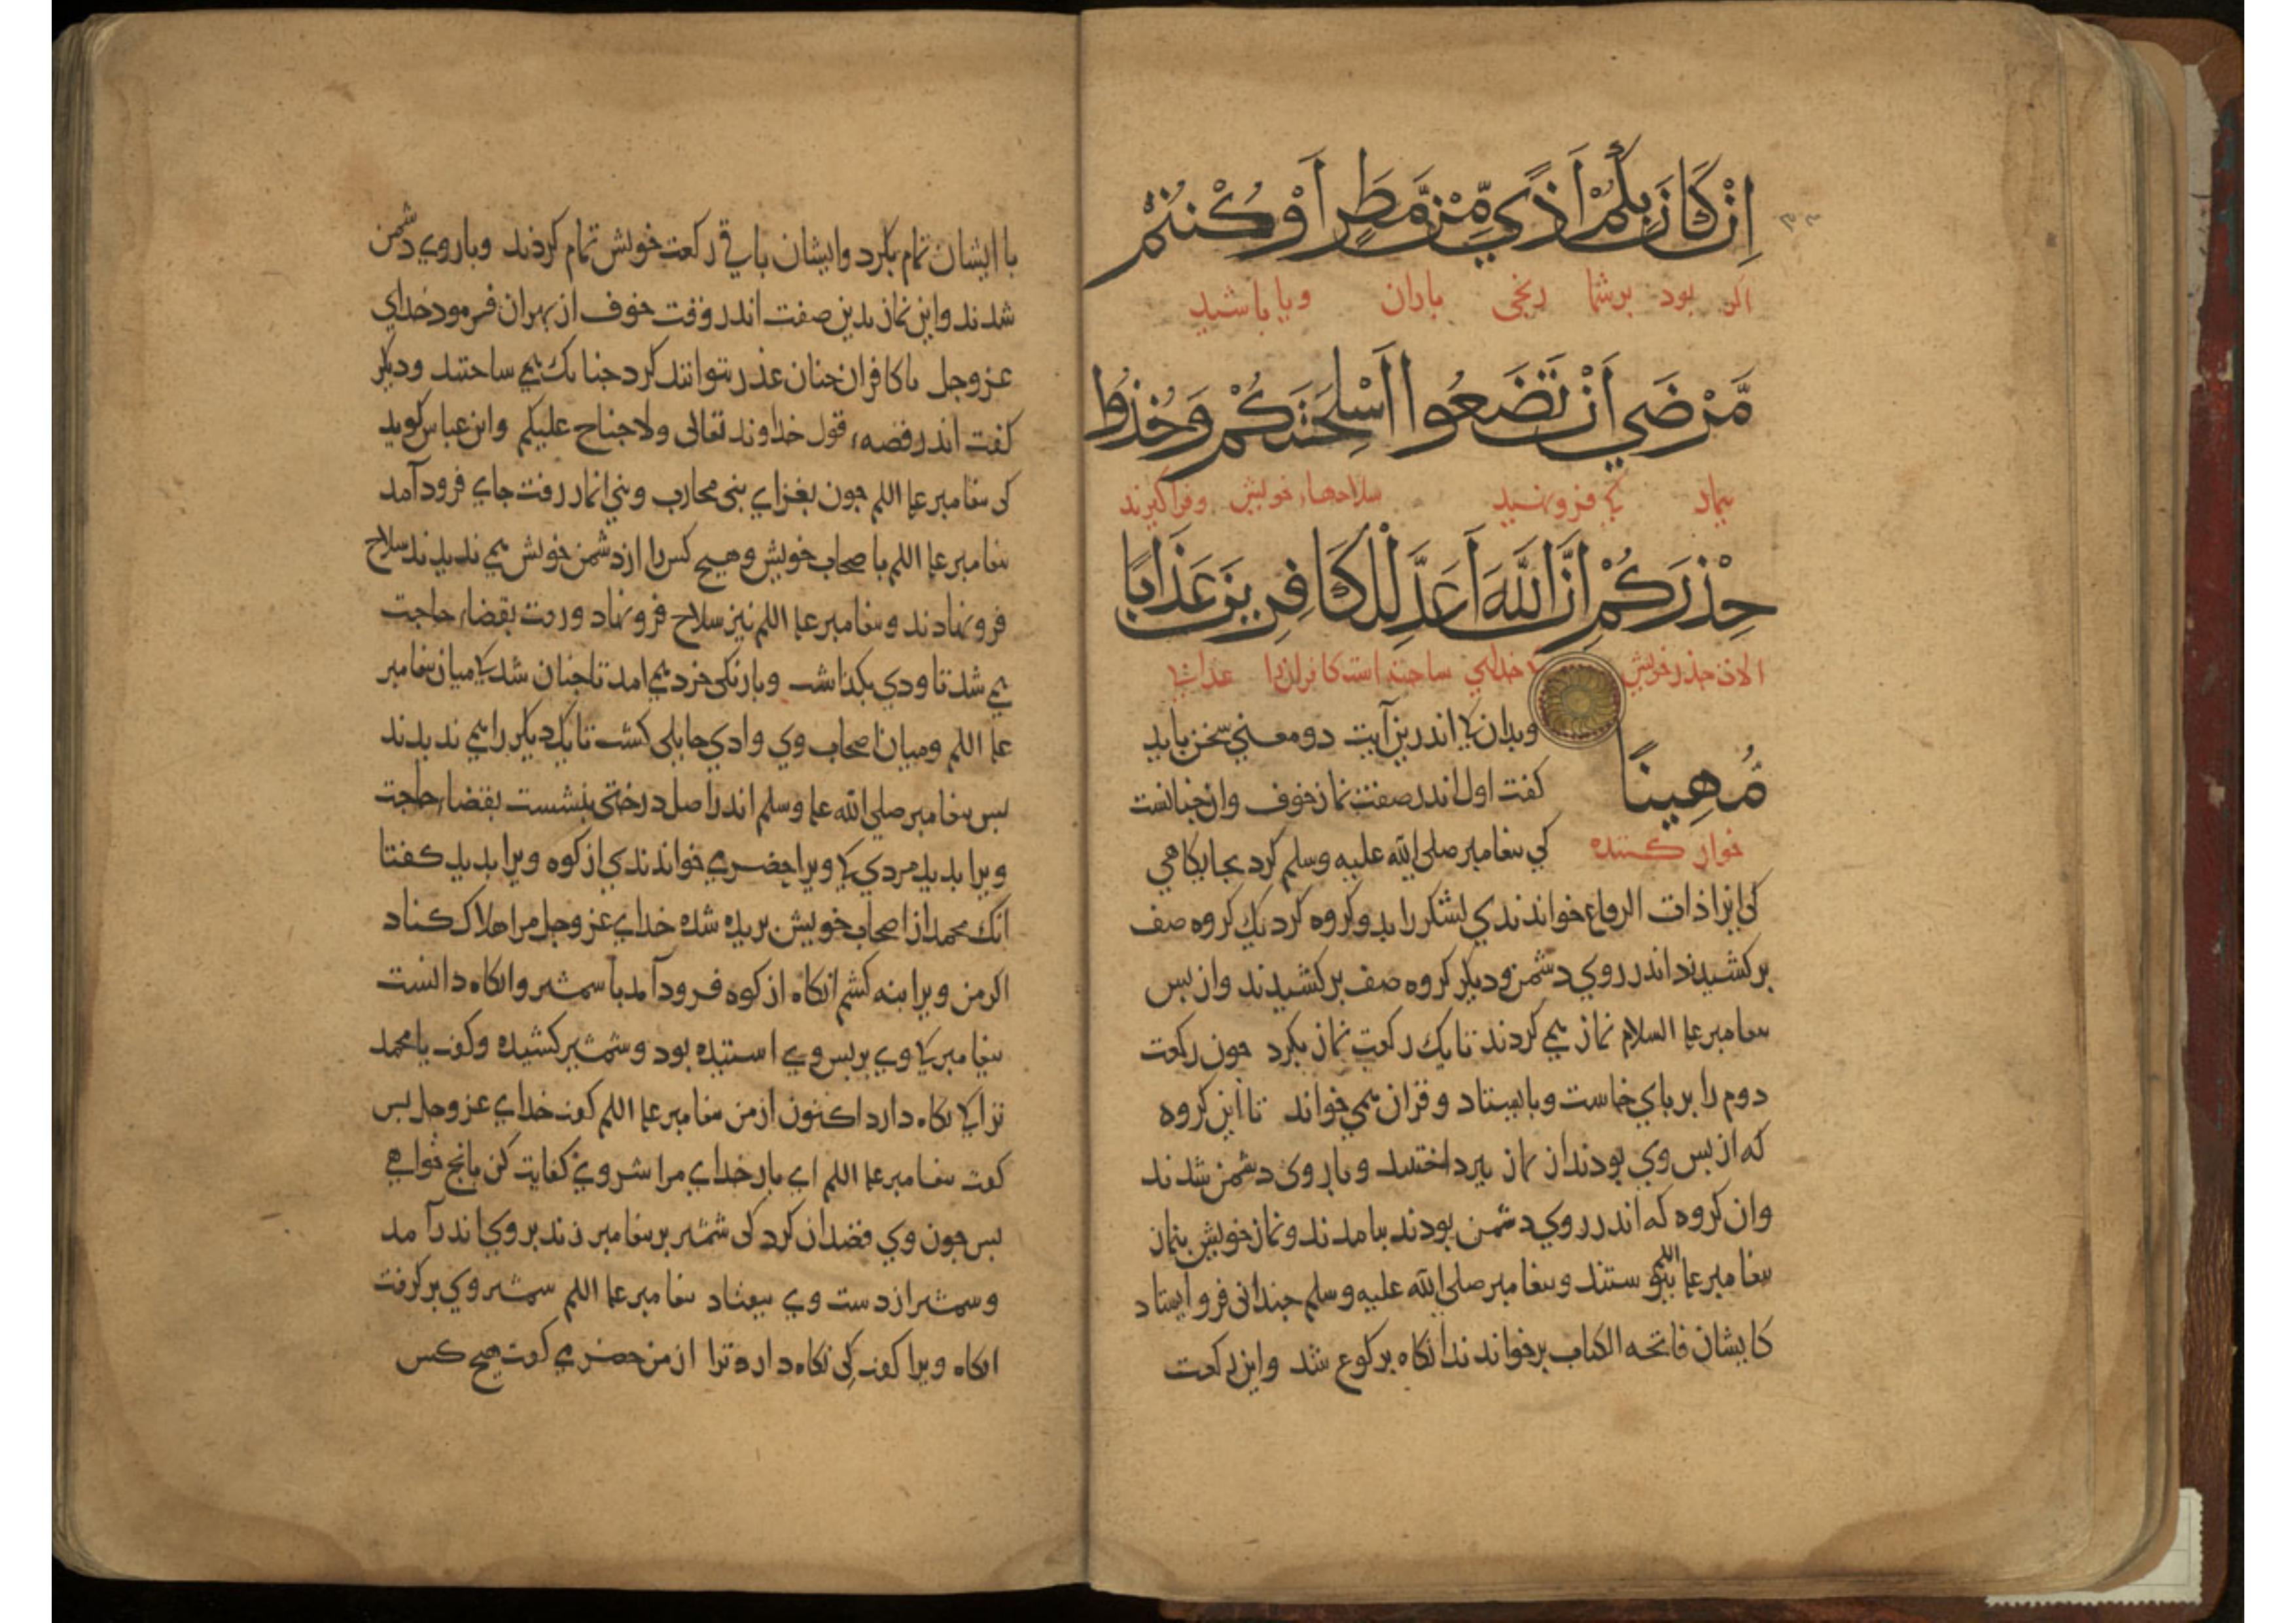 اِنْ كَانَ بِكُمْ اَذًي مِّنْ مَّطَرٍ اَوْ كُنْتُمْ
اكر بود برشما رنجی باران ویا باشید
مَّرْضَي اَنْ تَضَعُوا اَسْلِحَتَكُمْ وَخُذُوا
بیمار کی فرونهید سلاحهاء خویش وفراکیرند
حِذْرَكُمْ اِنَّ اللَّهَ اَعَدَّ لِلْكَافِرِينَ عَذَابًا
الان حذر خویش خدای ساختداست کافرانرا عذابی
وبدان کی اندرین آیت دو معنی سخن باید
مُهِينًا
کفت اول اندر صفت نماز خوف وان جنانست
خوار کننده
کی بیغامبر صلی الله علیه وسلم کرد بجایکاهی
کی انرا ذات الرقاع خواندندی لشکر را بدو کروه کرد یک کروه صف
برکشیدند اندر روی دشمن ودیکر کروه صف برکشیدند وان بس
بیغامبر علیه السلام نماز همی کردند تا یک رکعت نماز بکرد جون رکعت
دوم را بربای خاست وبایستاد وقران همی خواند تا این کروه
که از بس وی بودند از نماز ببرداختند وباروی دشمن شدند
وان کروه که اندر روی دشمن بودند بیامدند ونماز خویش بنماز
بیغامبر علیه السلم ببیوستند وبیغامبر صلی الله علیه وسلم جندانی فرو ایستاد
کایشان فاتحه الکتاب برخواندند انکاه برکوع شد واین رکعت
با ایشان تمام بکرد وایشان باقی رکعت خویش تمام کردند وباروی دشمن
شدند واین نماز بدین صفت اندر وقت خوف از بهر ان فرمود خدای
عزوجل تا کافران جنان غدر نتوانند کرد جنانک همی ساختند ودیکر
کفت اندر قصه قول خداوند تعالی ولا جناح علیکم وابن عباس کوید
کی بیغامبر علیه السلم جون بغزای بنی محارب وبنی انمار رفت جای فرود آمد
بیغامبر علیه السلم با صحاب خویش وهیج کس را از دشمن خویش همی ندیدند سلاح
فرونهادند وبیغامبر علیه السلم نیز سلاح فرونهاد ورفت بقضاء حاجت
همی شد تا وادی بکذاشت وبارنکی خرد همی امد تا جنان شد کی میان بیغامبر
علیه السلم ومیان اصحاب وی وادی حایلی کشت تا یک دیکر را همی ندیدند
بس بیغامبر صلی الله علیه وسلم اندر اصل درختی بنشست بقضاء حاجت
ویرا بدید مردی کی ویرا حضری خواندندی از کوه ویرا بدید کفتا
انک محمد از اصحاب خویش بریده شده خدای عزوجل مرا هلاک کناد
اکر من ویرا بنه کشم انکاه از کوه فرود آمد با شمشیر وانکاه دانست
بیغامبر کی وی بربس وی استیده بود وشمشیر کشیده وکفت یا محمد
ترا کی نکاه دارد اکنون از من بیغامبر علیه السلم کفت خدای عزوجل بس
کفت بیغامبر علیه السلم ای بار خدای مرا شر وی کفایت کن بانج خواهی
بس جون وی قصد ان کرد کی شمشیر بر بیغامبر زند بروی اندر آمد
وشمشیر از دست وی بیفتاد بیغامبر علیه السلم شمشیر وی برکرفت
انکاه ویرا کفت کی نکاه دارد ترا از من حضری کفت هیج کس